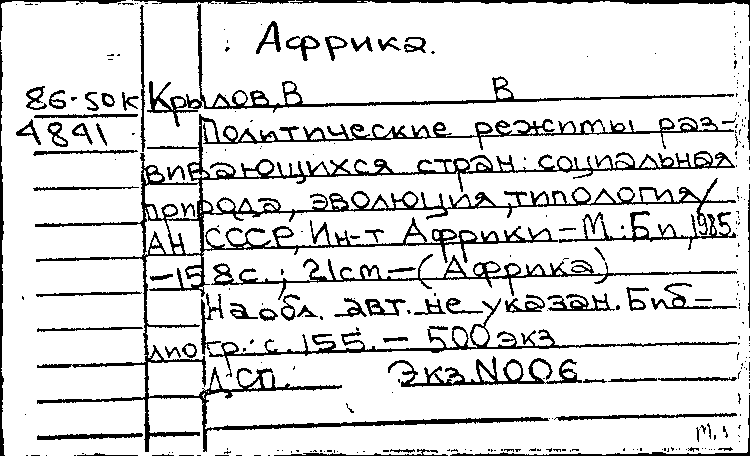 Африка.
86-50к Крылов, В В
4841 Политические режимы раз-
вивающихся стран: социальная
природа, эволюция, типология/
АН СССР, Ин-т Африки – М.: Б.и., 1985.
– 158 с.; 21 см. – (Африка)
На обл. авт. не указан. Биб-
лиогр.: с. 155. – 500 экз
ДСП. Экз. N006